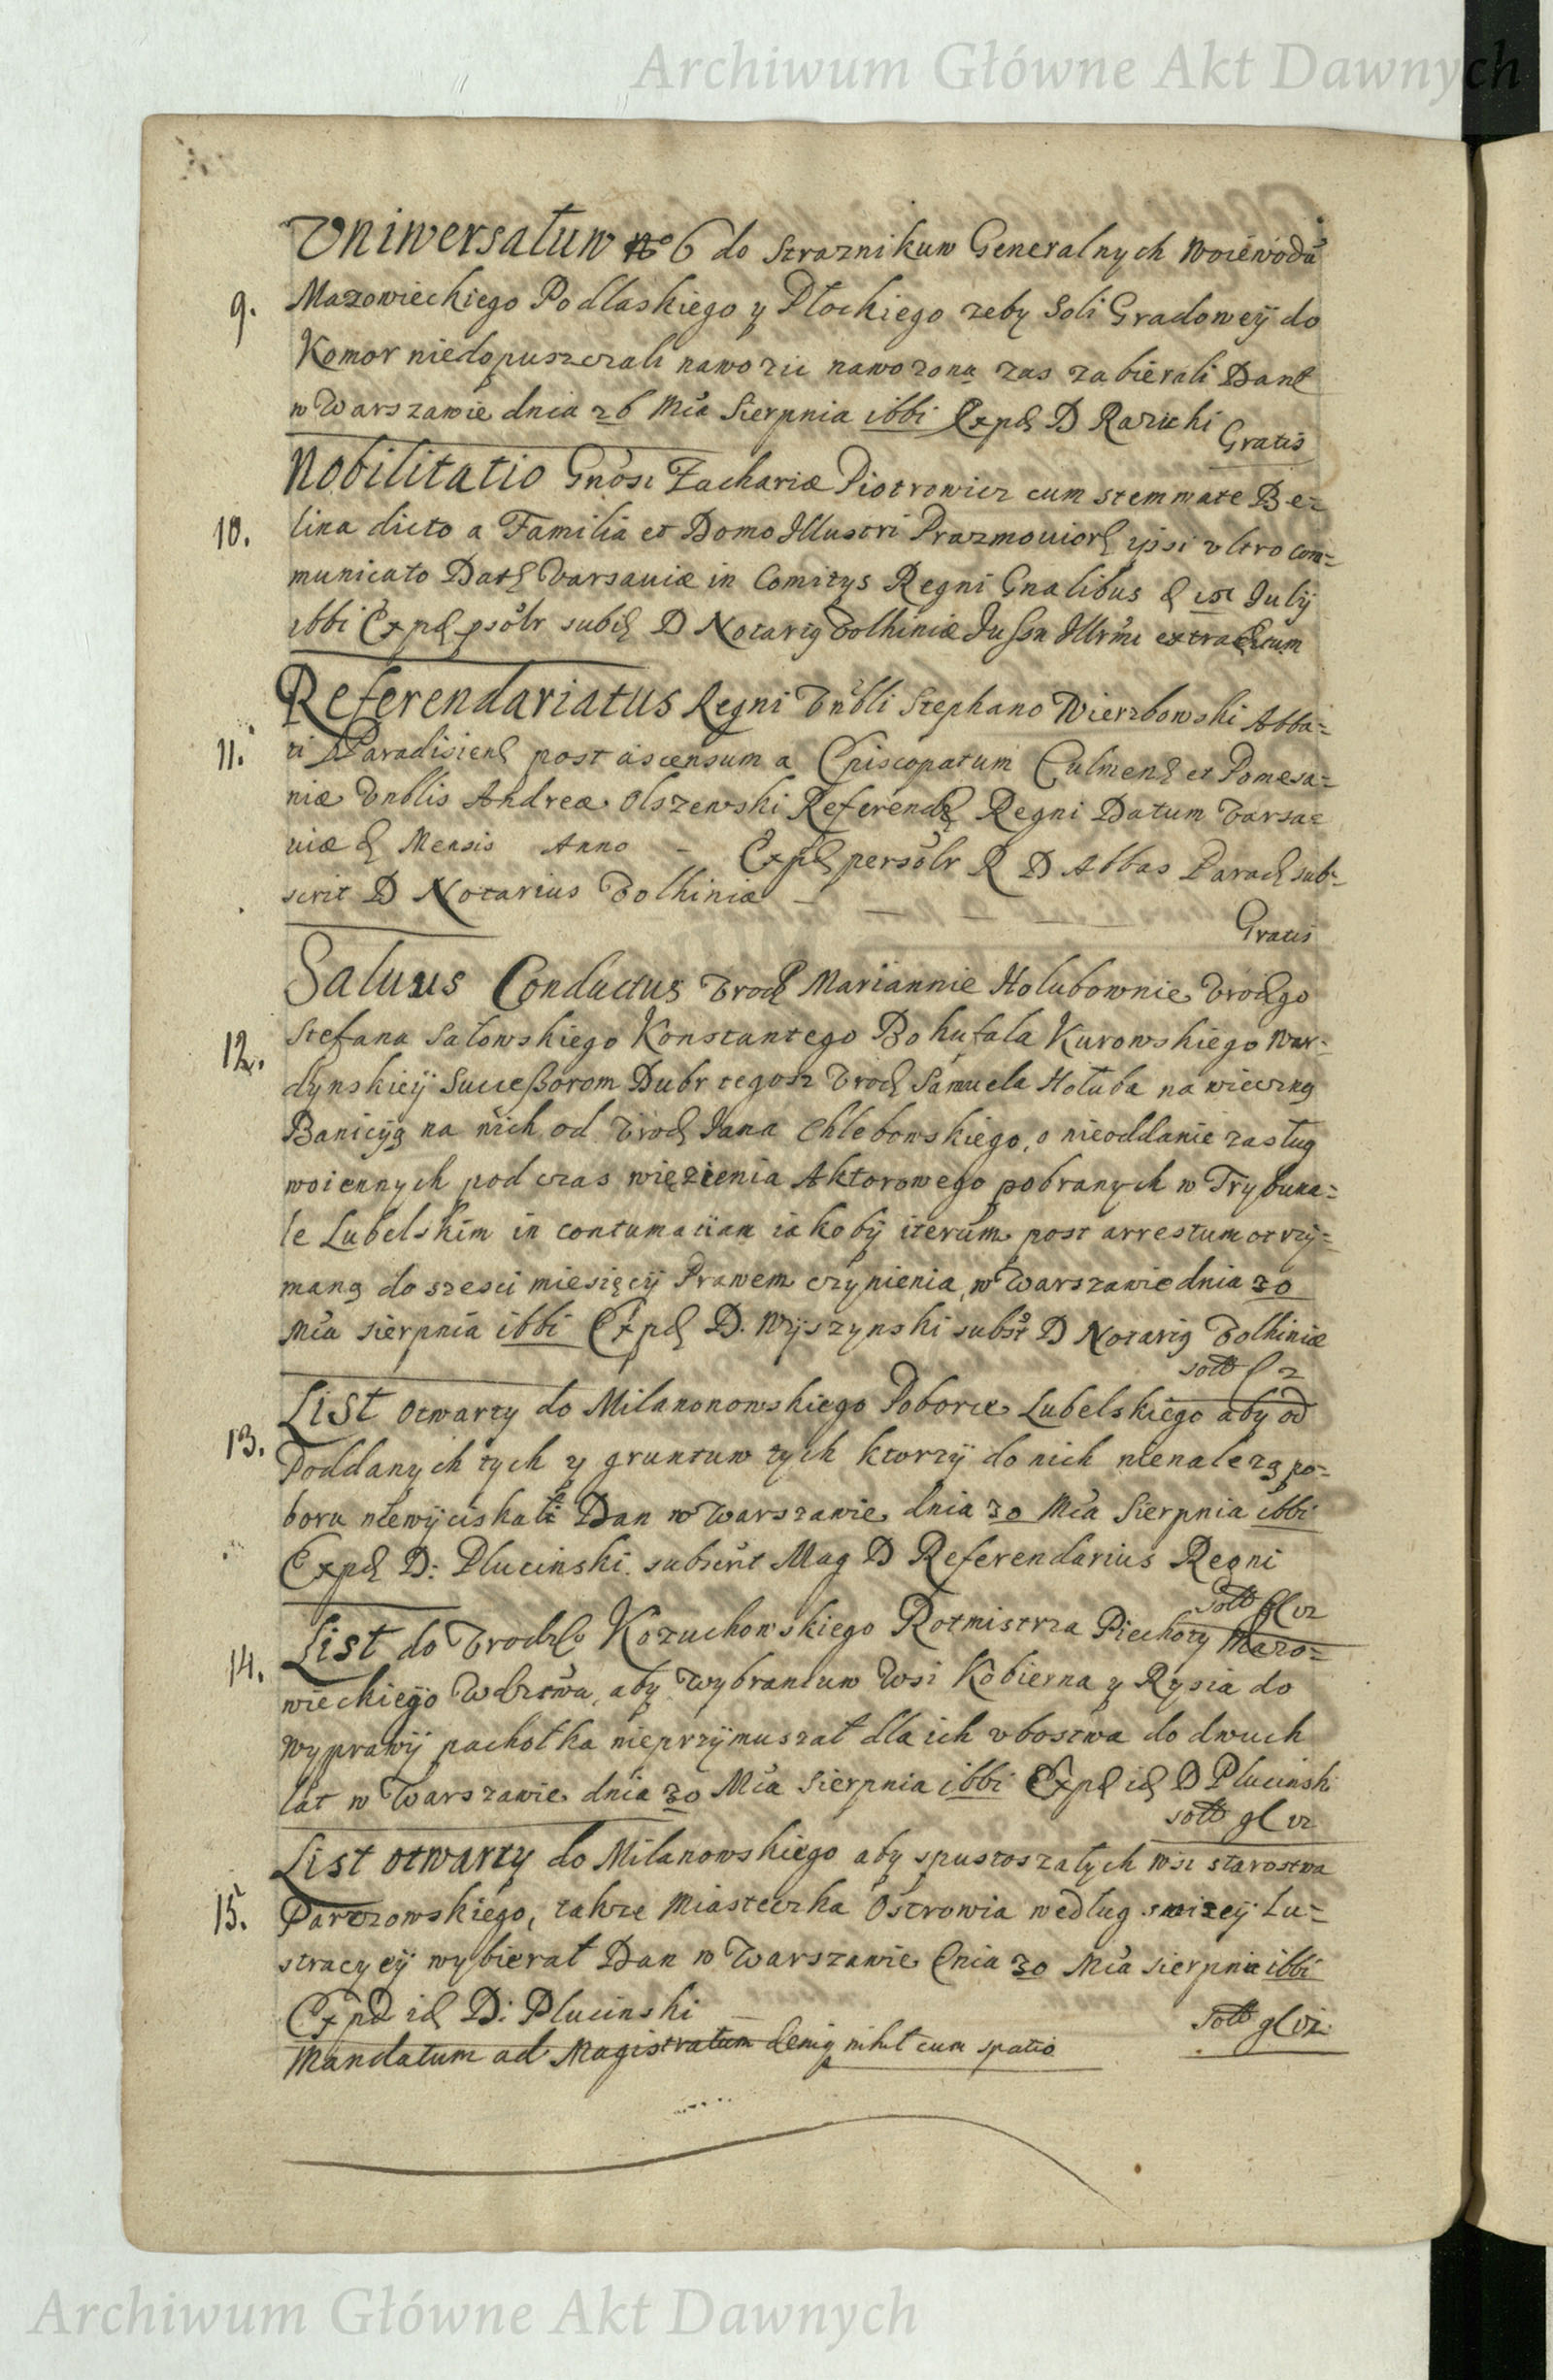 Archiwum Główne Akt Dawnych
Uniwersałuw No 6 do Straznikuw Generalnych Woiewodũ
9. Mazowieckiego Podlaskiego y Płockiego zeby Soli Gradoweÿ do
Komor niedopuszczali nawozic nawozoną zas zabierali Dant
w Warszawie dnia 26 Mca Sierpnia 1661 Exped D Razicki
Gratis
Nobilitatio Gnosi Zachariæ Piotrowicz cum stemmate Be=
10. lina dicto a Familia et Domo Illustri Prazmouior ipsi vltro com=
municato Dat Varsauiæ in Comitys Regni Gnalibus d 15 Julÿ
1661 Exped psolr subs D Notari9 Volhiniæ Jussu Illrmi extractum
Referendariatus Regni Vnbli Stephano Wierzbowski Abba=
11. ti Paradisien post ascensum a Episcopatum Culmen et Pomesa=
niæ Vnblis Andreæ Olszewski Referend Regni Datum Varsa=
uiæ d Mensis Anno - Exped persolr R D Abbas Parad sub=
scrit D Notarius Volhiniæ
Gratis
Saluus Conductus Vrod Mariannie Holubownie Vrodgo
12. Stefana Satowskiego Konstantego Bohufala Kurowskiego War=
dynskieÿ Successorom Dubr tegosz Vrod Samuela Hołuba na wieczną
Banicyą na nich od Vrod Jana Chlebowskiego, o nieoddanie zasług
woiennych pod czas więzienia Aktorowego pobranych w Trybuna=
le Lubelskim in contumatiam iakobÿ iterum post arrestum otrzÿ=
maną do szesci miesięcÿ Prawem czynienia, w Warszawie dnia 30
Mca Sierpnia 1661 Exped D. Wÿszynski subsr D Notari9 Volhiniæ
List Otwarty do Milanonowskiego Poborce Lubelskiego aby od
13. Poddanych tych y gruntuw tych ktorzÿ do nich nienalezą po=
boru niewÿciskali Dan w Warszawie dnia 30 Mca Sierpnia 1661
Exped D: Plucinski. subscrit Mag D Referendarius Regni
List do Vrodzo Kozuchowskiego Rotmistrza Piechoty Mazo=
14. wieckiego Wdztwa, aby Wybrancuw Wsi Kobierna y Rysia do
wyprawÿ pachołka nieprzÿmuszał dla ich vbostwa do dwuch
lat w Warszawie dnia 30 Mca Sierpnia 1661 Exped id D Plucinski
List otwarty do Milanowskiego aby spustoszałych wsi starostwa
15. Parczowskiego, takze Miasteczka Ostrowia według swizeÿ Lu=
stracyeÿ wybierał Dan w Warszawie dnia 30 Mca Sierpnia 1661
Exped id D: Plucinski
Mandatum ad Magistratum deniq nihil cum spatio
Archiwum Główne Akt Dawnych